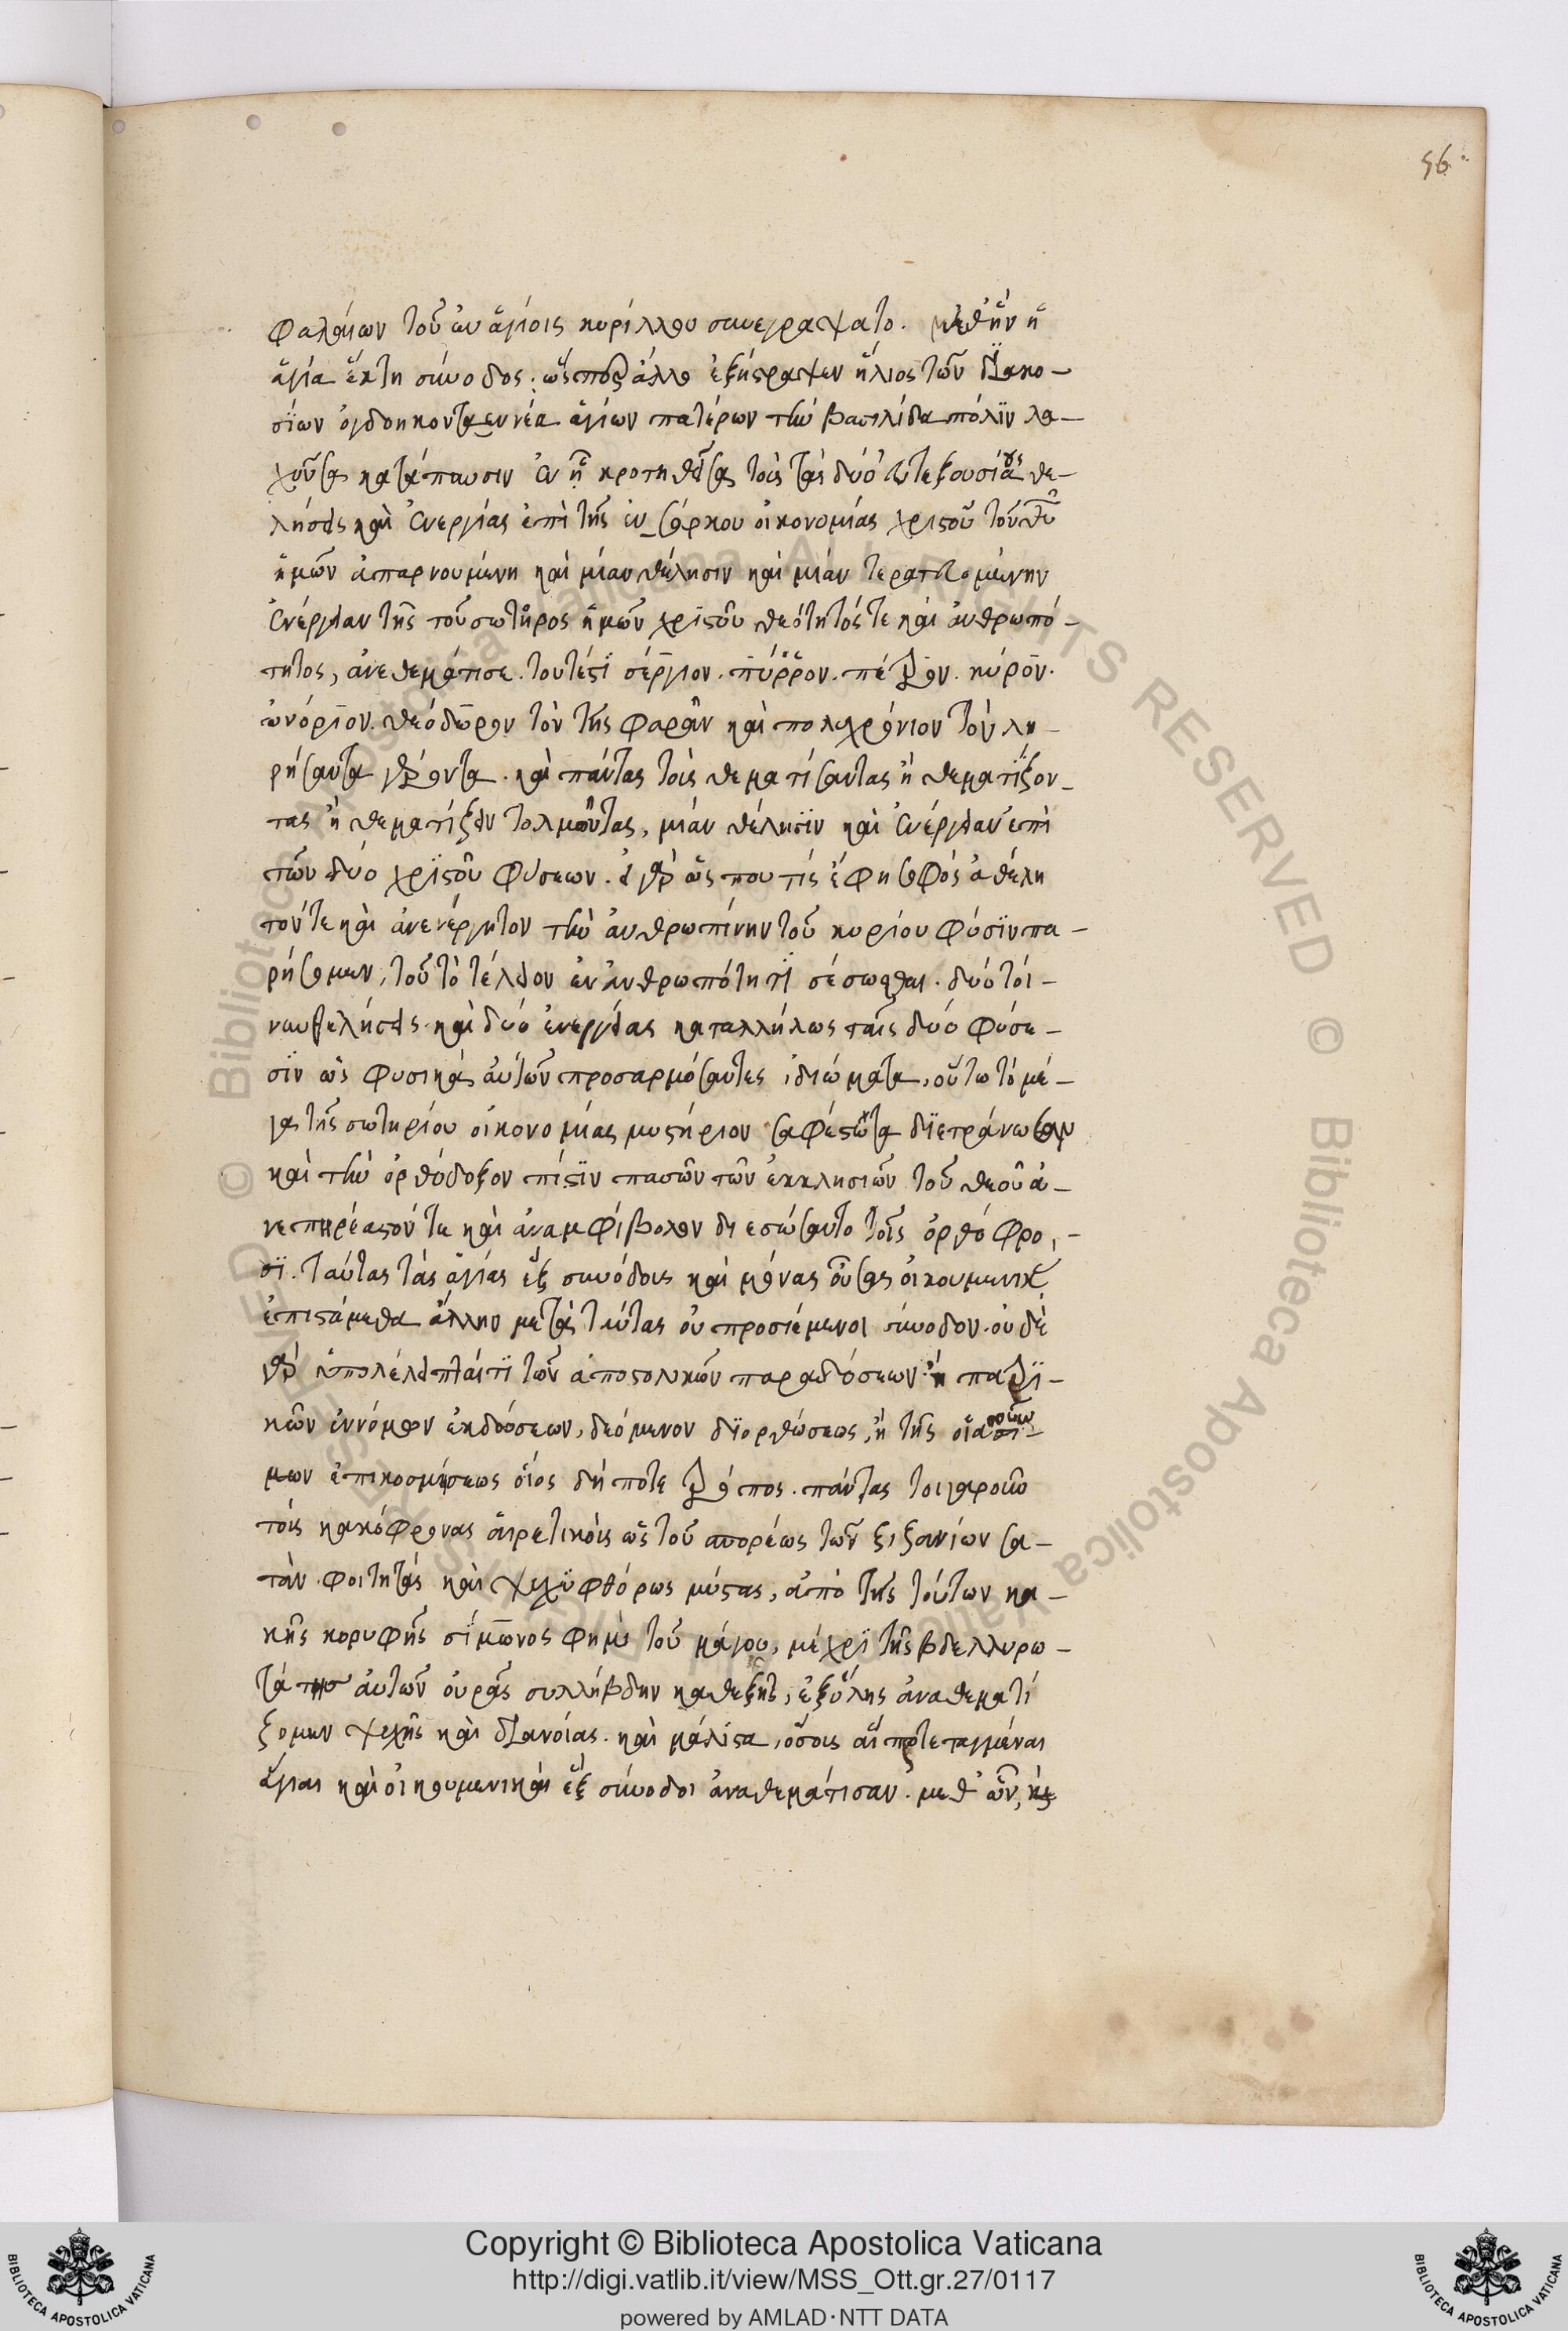 56
φαλαίων τοῦ ἐν ἁγίοις κυρίλλου συνεγράψατο. μεθ' ἣν ἡ
ἁγία ἕκτη σύνοδος· ἐξήστραψεν ἥλιος τῶν διακο-
σίων ὀγδοηκονταεννέα ἁγίων πατέρων τὴν βασιλίδα πόλϊν λα-
χοῦσα κατάπαυσιν ἐν ᾗ κροτηθεῖσα τοὺς τὰς δύο αὐτεξουσίους θε-
λήσεις καὶ ἐνεργείας ἐπὶ τῆς ἐνσάρκου οἰκονομίας χριστοῦ τοῦ θυ
ἡμῶν ἀπαρνουμένη καὶ μίαν θέλησιν καὶ μίαν τερατευομένην
ἐνέργειαν τῆς τοῦ σωτῆρος ἡμῶν χριστοῦ θεότητός τε καὶ ἀνθρωπό-
τητος, ἀνεθεμάτισε. τουτέστϊ σέργιον. πύρρον. πέτρον. κύρον.
ὡνόριον. θεόδωρον τὸν τῆς φαρὰν καὶ πολυχρόνιον τὸν λη-
ρήσαντα γέροντα. καὶ πάντας τοὺς θεματίσαντας ἢ θεματίζον-
τας ἢ θεματίζειν τολμῶντας, μίαν θέλησϊν καὶ ἐνέργειαν ἐπὶ
τῶν δύο χριστοῦ φύσεων. εἰ γὰρ ὥς που τίς ἔφη σοφὸς ἀθέλη
τόν τε καὶ ἀνενέργητον τὴν ἀνθρωπίνην τοῦ κυρίου φύσϊν πα-
ρήσομεν, ποῦ τὸ τέλειον ἐν ἀνθρωπότητϊ σέσωσται. δύο τοί-
νυν θελήσεις καὶ δύο ἐνεργείας καταλλήλως ταῖς δύο φύσε-
σϊν ὡς φυσικὰ αὐτῶν προσαρμόσαντες ἰδιώματα, οὕτω τὸ μέ-
γα τῆς σωτηρίου οἰκονομίας μυστήριον σαφέστατα διετράνωσαν
καὶ τὴν ὀρθόδοξον πίστϊν πασῶν τῶν ἐκκλησιῶν τοῦ θεοῦ ἀ-
νεπηρέαστόν τε καὶ ἀναμφίβολον διεσώσαντο τοῖς ὀρθόφρο-
σϊ. ταύτας τὰς ἁγίας ἓξ συνόδους καὶ μόνας οὔσας οἰκουμενικ
ἐπιστάμεθα ἄλλην μετὰ ταύτας οὐ προσιέμενοι σύνοδον. οὐδὲ
γὰρ ὑπολέλειπταί τϊ τῶν ἀποστολικῶν παραδόσεων ἢ πατρϊ-
κῶν ἐννόμων ἐκδόσεων, δεόμενον διορθώσεως, ἢ τῆς οἱασοῦν
ἐπικοσμήσεως οἷος δήποτε τρόπος. πάντας τοιγαροῦν
τοὺς κακόφρονας αἱρετικοὺς ὡς τοῦ σπορέως τῶν ζιζανίων σα-
τὰν φοιτητὰς καὶ ψυχϋφθόρως μύστας, ἀπὸ τῆς τούτων κα-
κῆς κορυφῆς σίμωνος φημὶ τοῦ μάγου, μέχρϊ τῆς βδελλυρω-
τάτης αὐτῶν οὐρᾶς συλλήβδην καθεξῆς, ἐξ ὅλης ἀναθεματί
ζομεν ψυχῆς καὶ διανοίας. καὶ μάλιστα, ὅσους αἱ προτεταγμέναι
ἅγιαι καὶ οἰκουμενικαὶ ἓξ σύνοδοι ἀναθεμάτισαν. μεθ' ὧν,
Copyright © Biblioteca Apostolica Vaticana
http://digi.vatlib.it/view/MSS_Ott.gr.27/0117
powered by AMLAD·NTT DATA